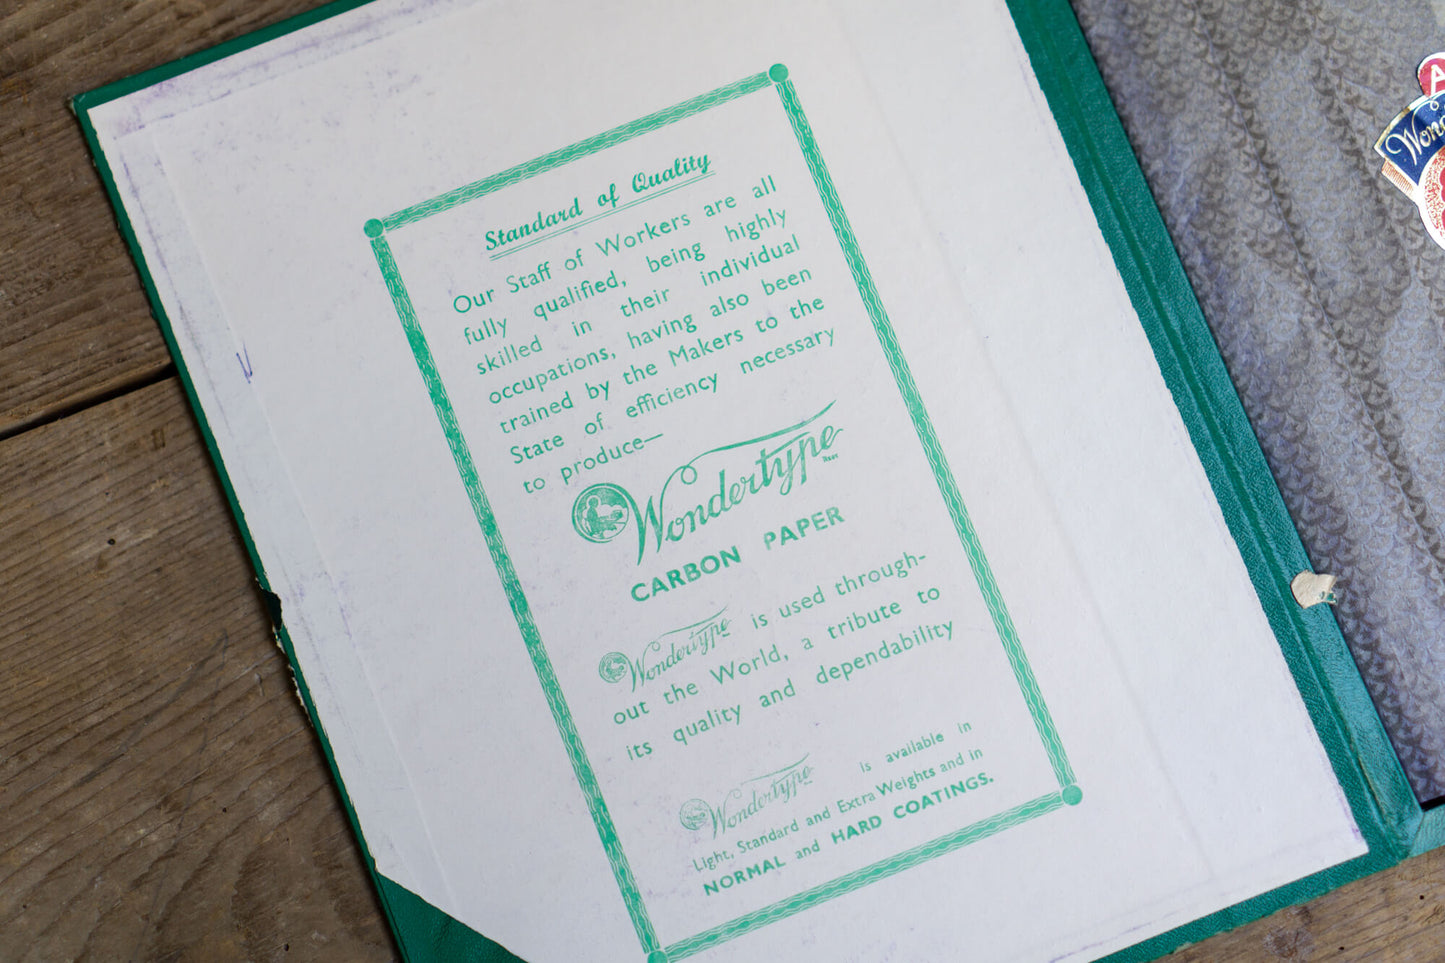 Standard of Quality
Our Staff of Workers are all
fully qualified, being highly
skilled in their individual
occupations, having also been
trained by the Makers to the
State of efficiency necessary
to produce—
Wondertype
REGT
CARBON PAPER
Wondertype is used through-
out the World, a tribute to
its quality and dependability
Wondertype is available in
Light, Standard and Extra Weights and in
NORMAL and HARD COATINGS.
A
Won